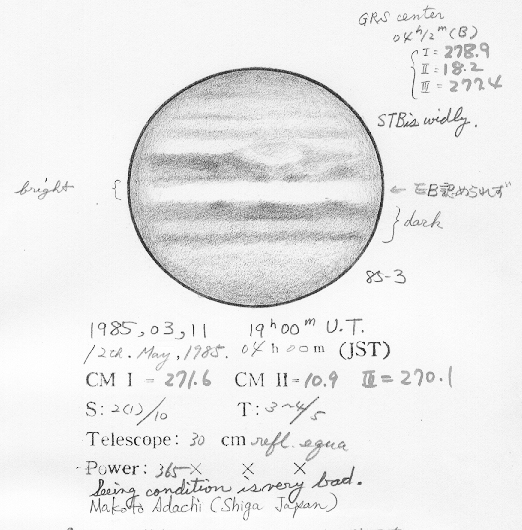 GRS center
04ʰ12ᵐ(B)
I = 278.9
II = 18.2
III = 277.4
STB is widly.
bright
← EB認められず
dark
85-3
1985, 03, 11 19ʰ00ᵐ U.T.
12th. May, 1985. 04ʰ00m (JST)
CM I = 271.6 CM II = 10.9 III = 270.1
S: 2(1)/10 T: 3~4/5
Telescope: 30 cm refl. equa
Power: 365× × ×
Seeing condition is very bad.
Makoto Adachi (Shiga Japan)